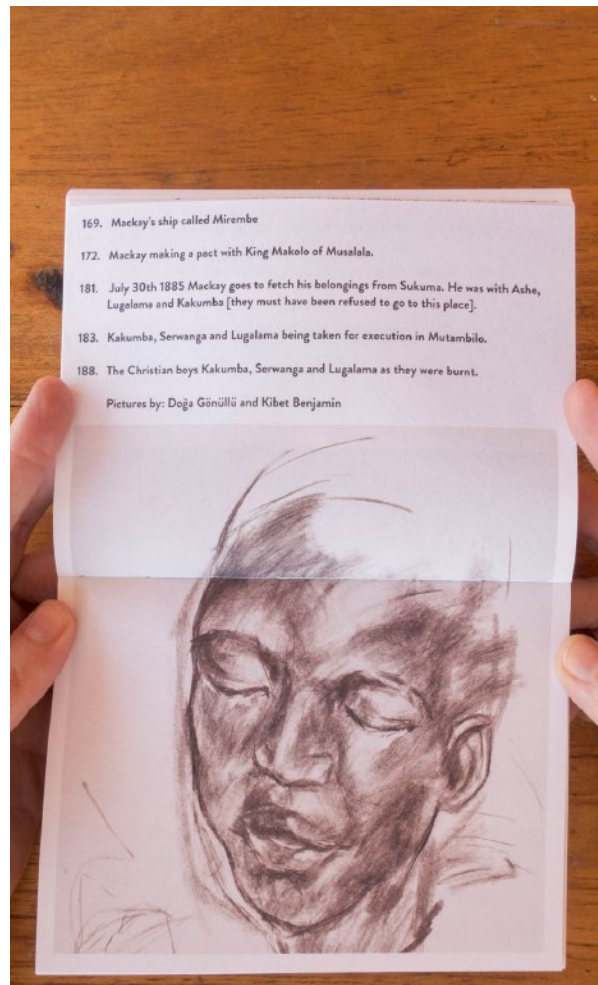 169. Mackay's ship called Mirembe
172. Mackay making a pact with King Makolo of Musalala.
181. July 30th 1885 Mackay goes to fetch his belongings from Sukuma. He was with Ashe,
Lugalama and Kakumba [they must have been refused to go to this place].
183. Kakumba, Serwanga and Lugalama being taken for execution in Mutambilo.
188. The Christian boys Kakumba, Serwanga and Lugalama as they were burnt.
Pictures by: Doğa Gönüllü and Kibet Benjamin